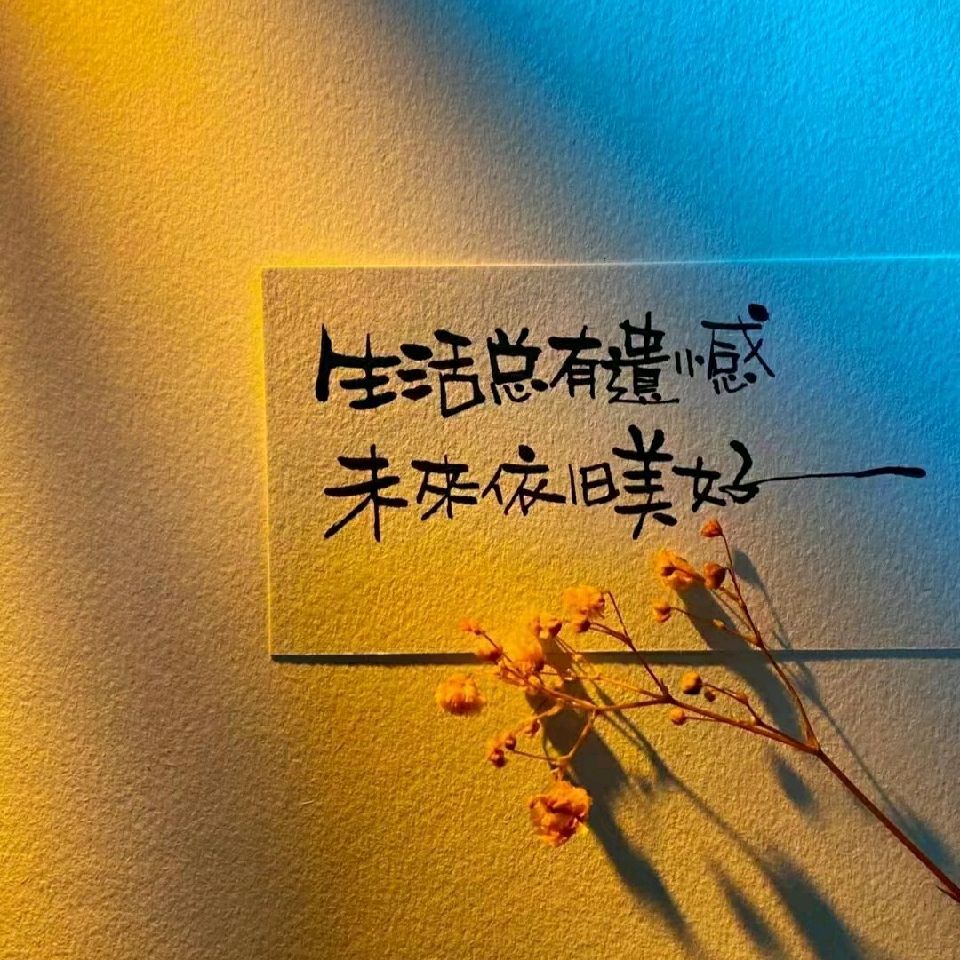 生活总有遺憾
未來依旧美好